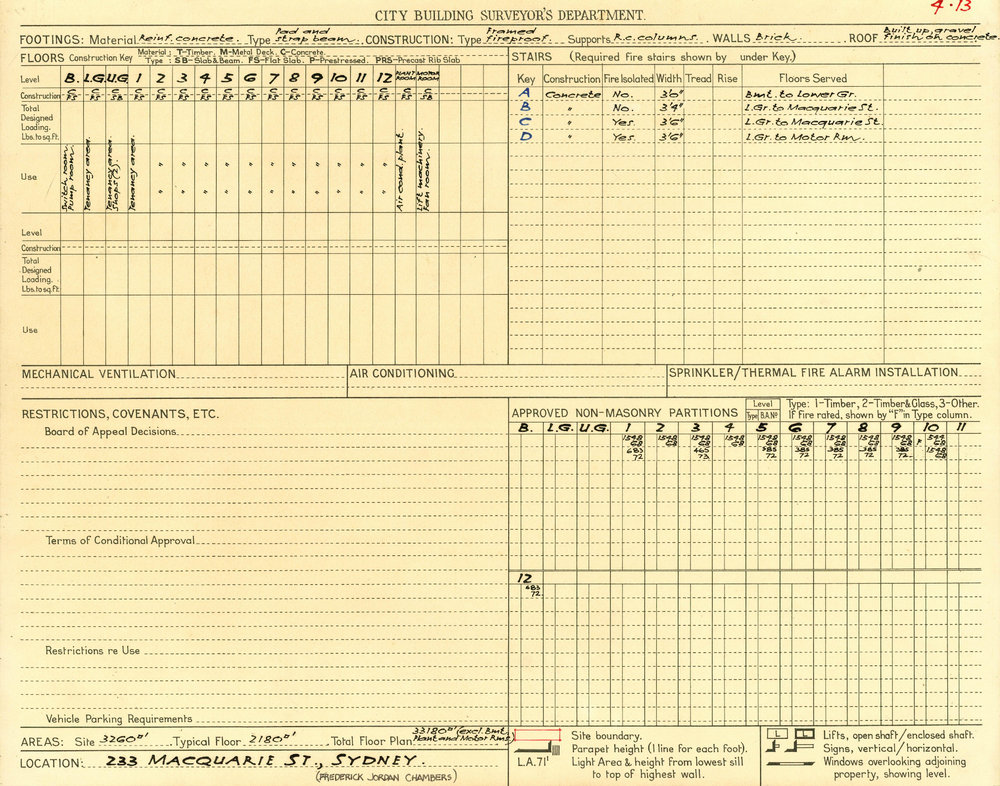 4.13
CITY BUILDING SURVEYOR'S DEPARTMENT.
FOOTINGS: Material Reinf. concrete. Type Pad and strap beam. CONSTRUCTION: Type Framed Fireproof. Supports R.c. columns. WALLS Brick. ROOF Built up, gravel finish on concrete.
FLOORS Construction Key Material; T-Timber, M-Metal Deck, C-Concrete.
Type; SB-Slab & Beam. FS-Flat Slab. P-Prestressed. PRS-Precast Rib Slab
Level B. L.G. U.G 1 2 3 4 5 6 7 8 9 10 11 12 PLANT ROOM MOTOR ROOM
Construction C FS C FS C SB C FS C FS C FS C FS C FS C FS C FS C FS C FS C FS C FS C FS C FS C SB
Total
Designed
Loading.
Lbs. to sq. ft.
Use Switch room. Pump room. Tenancy area. Tenancy area. Shops (2). Tenancy area. " " " " " " " " " " " Air cond. plant. Lift machinery. Fan room.
" " " " " " " " " " "
Level
Construction
Total
Designed
Loading.
Lbs. to sq. ft.
Use
STAIRS (Required fire stairs shown by under Key.)
Key Construction Fire Isolated Width Tread Rise Floors Served
A Concrete No. 3'0" Bmt. to Lower Gr.
B " No. 3'4" L.Gr. to Macquarie St.
C " Yes. 3'6" L.Gr. to Macquarie St.
D " Yes. 3'6" L.Gr. to Motor Rm.
MECHANICAL VENTILATION
AIR CONDITIONING
SPRINKLER/THERMAL FIRE ALARM INSTALLATION
RESTRICTIONS, COVENANTS, ETC.
Board of Appeal Decisions
Terms of Conditional Approval
Restrictions re Use
Vehicle Parking Requirements
APPROVED NON-MASONRY PARTITIONS
Level
Type B.A.Nº
Type: 1-Timber, 2-Timber & Glass, 3-Other.
If Fire rated, shown by "F" in Type column.
B. L.G. U.G. 1 2 3 4 5 6 7 8 9 10 11
1548 1548 1548 1548 1548 1548 1548 1548 1548 544
68 68 68 68 68 68 68 68 68 68
683 465 385 385 385 385 385 1548
72 73 72 72 72 72 72 68
12
683
72
AREAS: Site 3260□' Typical Floor 2180□' Total Floor Plan 33180□' (excl. Bmt. Plant and Motor Rms)
LOCATION: 233 MACQUARIE ST., SYDNEY.
(FREDERICK JORDAN CHAMBERS)
Site boundary.
Parapet height (1 line for each foot).
L.A.71' Light Area & height from lowest sill
to top of highest wall.
L L Lifts, open shaft/enclosed shaft.
Signs, vertical/horizontal.
Windows overlooking adjoining
property, showing level.